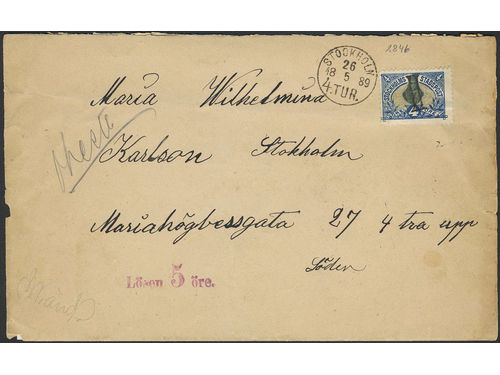 1846
STOCKHOLM
26
18 5 89
4.TUR.
STOCKHOLMS STADSPOST
Maria Wilhelmina
Karlson Stokholm
Mariahögbessgata 27 4 tra upp
Söder
Lösen 5 öre.